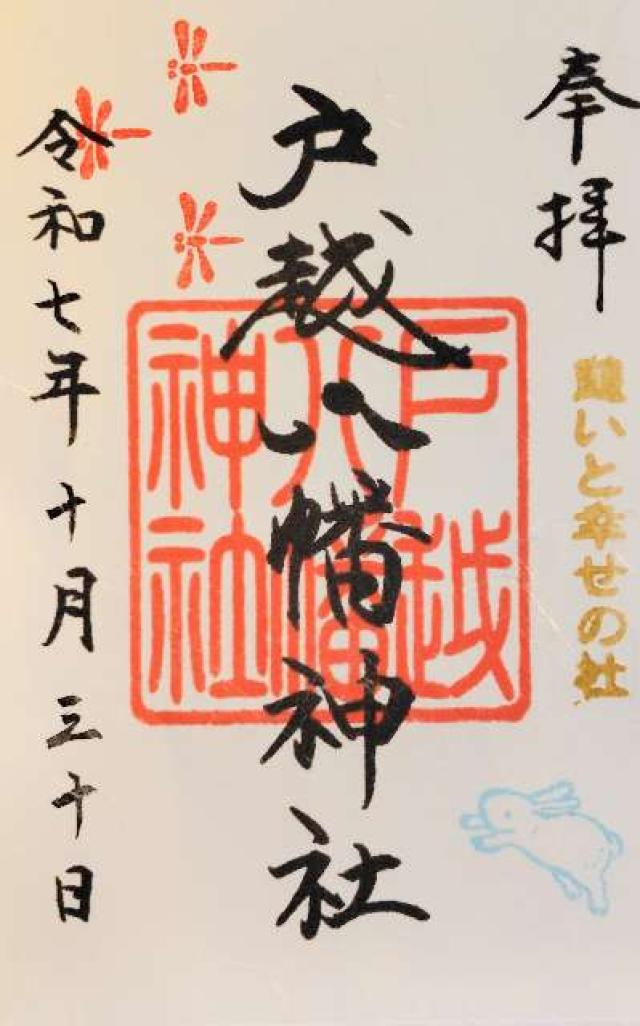 奉拝
願いと幸せの社
戸越八幡神社
戸越
八幡
神社
令和七年十月三十日